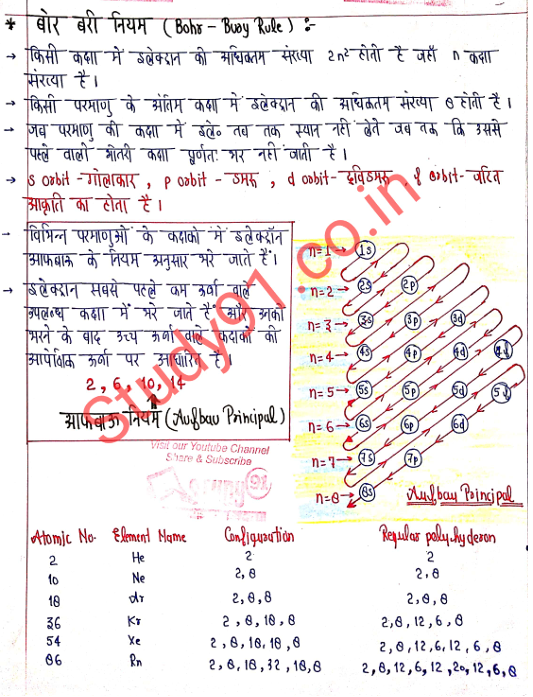 * बोर बरी नियम (Bohr - Bury Rule) :-
→ किसी कक्षा में इलेक्ट्रान की अधिकतम संख्या 2n² होती है जहाँ n कक्षा
संख्या है।
→ किसी परमाणु के अंतिम कक्षा में इलेक्ट्रान की अधिकतम संख्या 8 होती है।
→ जब परमाणु की कक्षा में इले० तब तक स्थान नहीं लेते जब तक कि उससे
पहले वाली भीतरी कक्षा पूर्णतः भर नहीं जाती है।
→ s orbit - गोलाकार, p orbit - डमरू, d orbit - द्विडमरू, f orbit - जटिल
आकृति का होता है।
→ विभिन्न परमाणुओं के कक्षकों में इलेक्ट्रॉन
आफबाऊ के नियम अनुसार भरे जाते हैं।
→ इलेक्ट्रान सबसे पहले कम ऊर्जा वाले
उपलब्ध कक्षा में भरे जाते हैं और उनको
भरने के बाद उच्च ऊर्जा वाले कक्षकों की
आपेक्षिक ऊर्जा पर आधारित है।
2, 6, 10, 14
आफबाऊ नियम (Aufbau Principal)
n=1 → 1s
n=2 → 2s 2p
n=3 → 3s 3p 3d
n=4 → 4s 4p 4d 4f
n=5 → 5s 5p 5d 5f
n=6 → 6s 6p 6d
n=7 → 7s 7p
n=8 → 8s
Aufbau Principal
Visit our Youtube Channel
Share & Subscribe
Study91.co.in
Atomic No. Element Name Configuration Regular polyhyderon
2 He 2 2
10 Ne 2, 8 2, 8
18 Ar 2, 8, 8 2, 8, 8
36 Kr 2, 8, 18, 8 2, 8, 12, 6, 8
54 Xe 2, 8, 18, 18, 8 2, 8, 12, 6, 12, 6, 8
86 Rn 2, 8, 18, 32, 18, 8 2, 8, 12, 6, 12, 20, 12, 6, 8